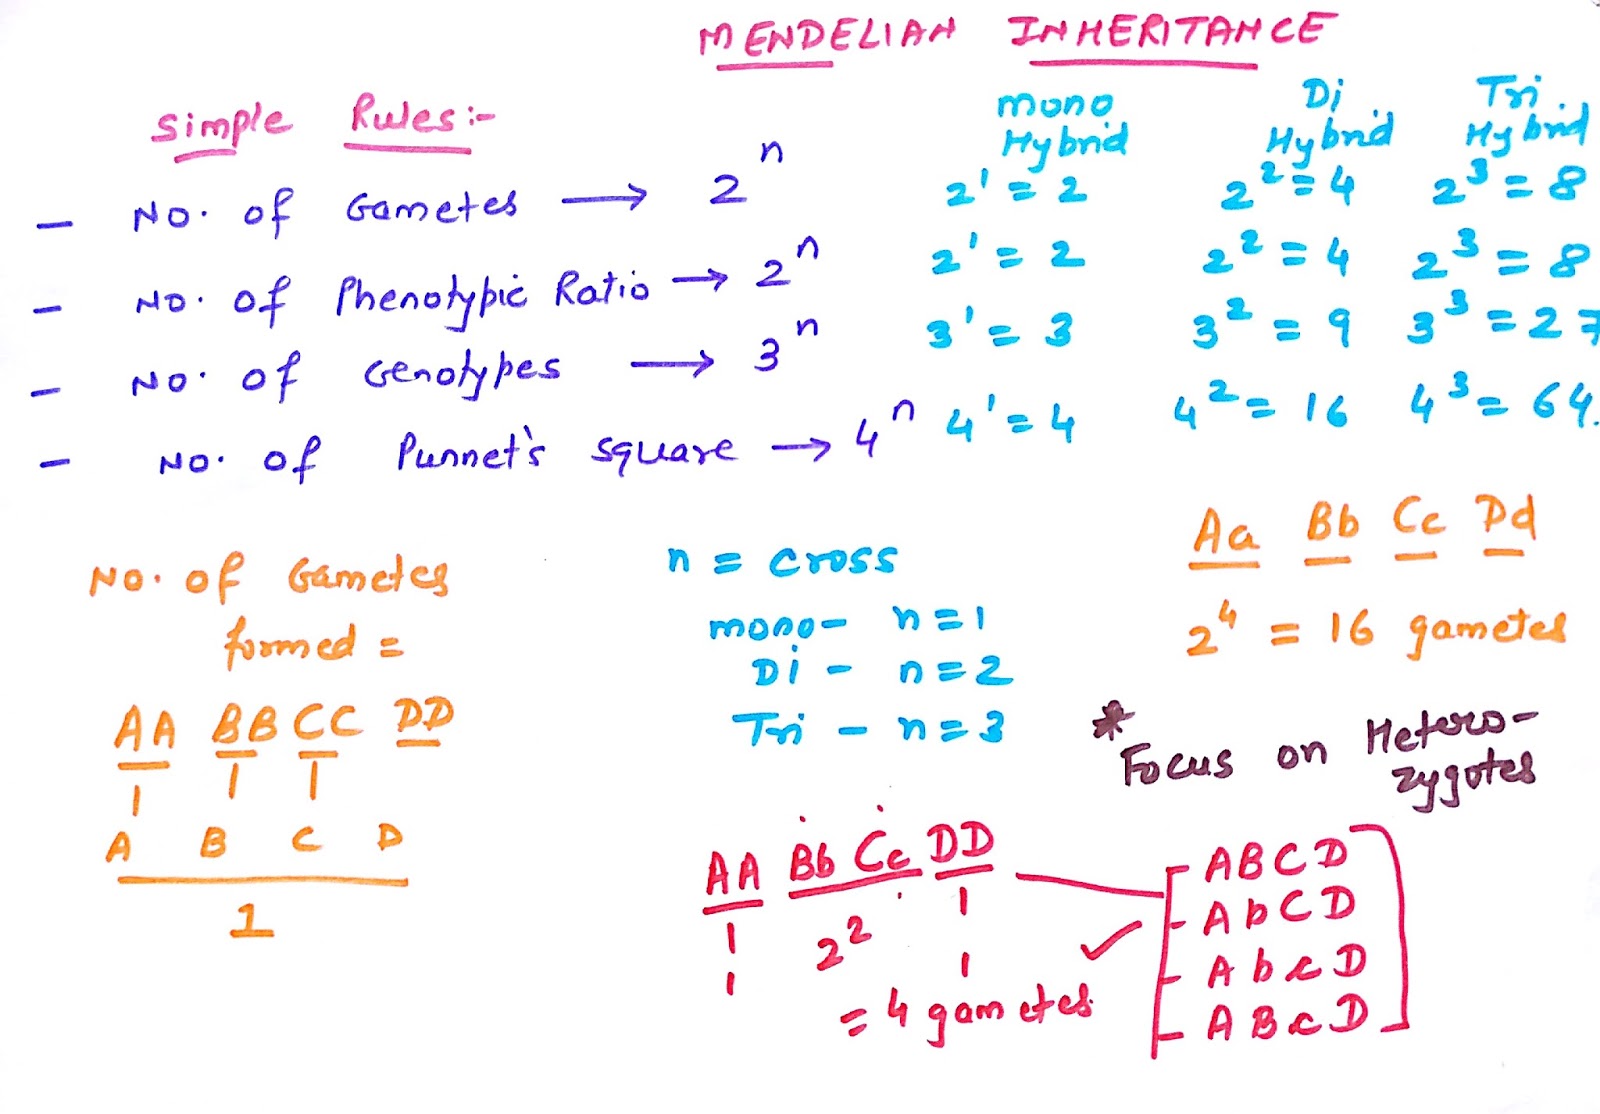 MENDELIAN INHERITANCE
Simple Rules:-
mono Hybrid
Di Hybrid
Tri Hybrid
- No. of Gametes → 2ⁿ 2¹ = 2 2² = 4 2³ = 8
- No. of Phenotypic Ratio → 2ⁿ 2¹ = 2 2² = 4 2³ = 8
- No. of Genotypes → 3ⁿ 3¹ = 3 3² = 9 3³ = 27
- No. of Punnet's square → 4ⁿ 4¹ = 4 4² = 16 4³ = 64.
No. of Gametes
formed =
AA BB CC DD
A B C D
1
n = cross
mono- n=1
Di - n=2
Tri - n=3
Aa Bb Cc Dd
2⁴ = 16 gametes
* Focus on Hetero-
zygotes
AA Bb Cc DD
1 2² 1
= 4 gametes
ABCD
AbCD
AbcD
ABcD